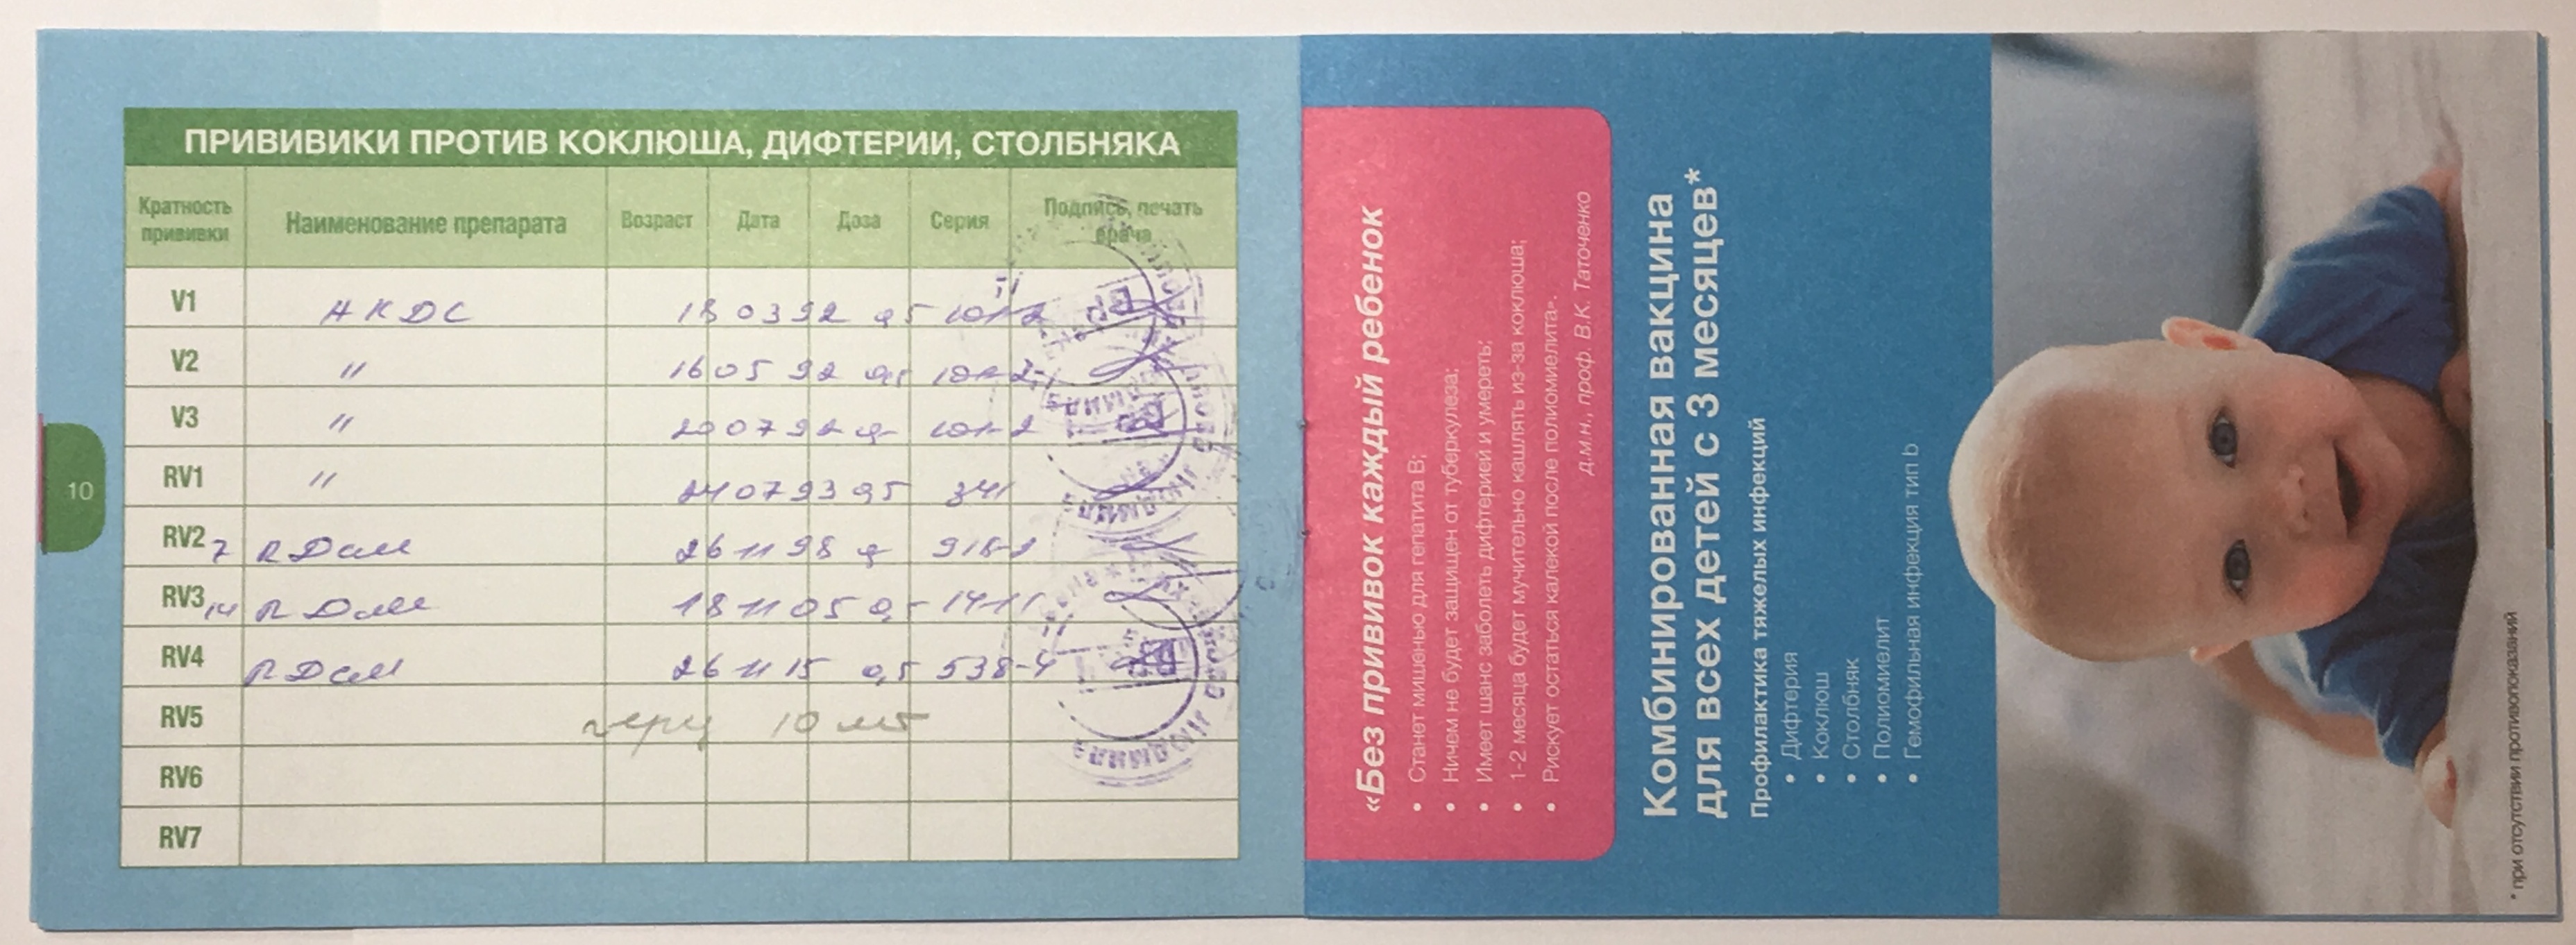 ПРИВИВИКИ ПРОТИВ КОКЛЮША, ДИФТЕРИИ, СТОЛБНЯКА
Кратность прививки Наименование препарата Возраст Дата Доза Серия Подпись, печать врача
V1 АКДС 18 03 92 0,5 101-2
V2 " 16 05 92 0,5 101-2
V3 " 20 07 92 101-2
RV1 " 24 07 93 0,5 341
RV2 7 АДСМ 26 11 98
RV3 14 АДСМ 18 11 05
RV4 АДСМ 26 11 15 0,5 538-4
RV5 через 10 лет
RV6
RV7
10
«Без прививок каждый ребенок
• Станет мишенью для гепатита В;
• Ничем не будет защищен от туберкулеза;
• Имеет шанс заболеть дифтерией и умереть;
• 1-2 месяца будет мучительно кашлять из-за коклюша;
• Рискует остаться калекой после полиомиелита».
д.м.н., проф. В.К. Таточенко
Комбинированная вакцина
для всех детей с 3 месяцев*
Профилактика тяжелых инфекций
• Дифтерия
• Коклюш
• Столбняк
• Полиомиелит
• Гемофильная инфекция тип b
* при отсутствии противопоказаний